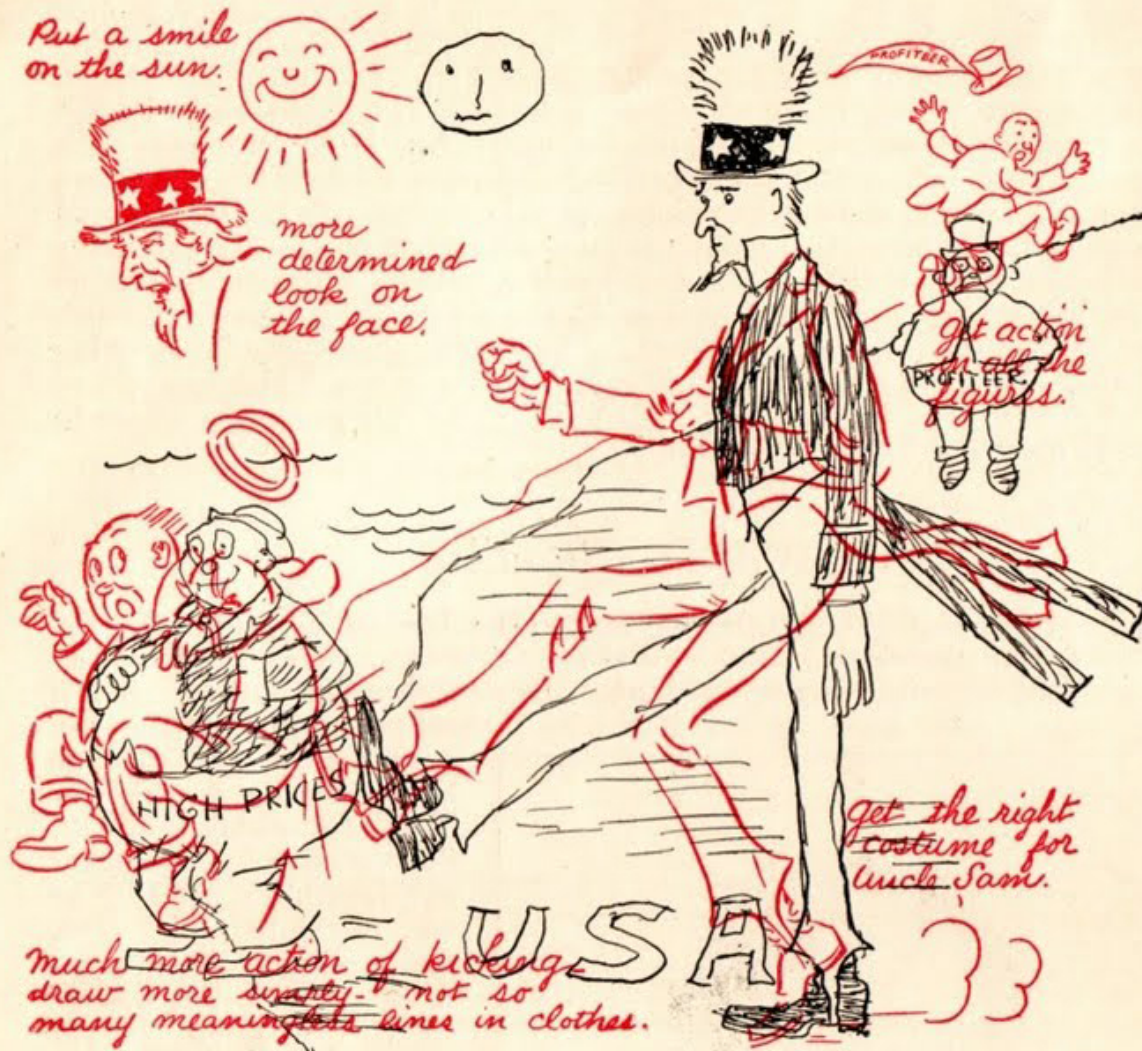 Put a smile
on the sun.
PROFITEER
more
determined
look on
the face.
get action
in all the
figures.
PROFITEER
HIGH PRICES
get the right
costume for
Uncle Sam.
= USA
Much more action of kicking-
draw more simply- not so
many meaningless lines in clothes.